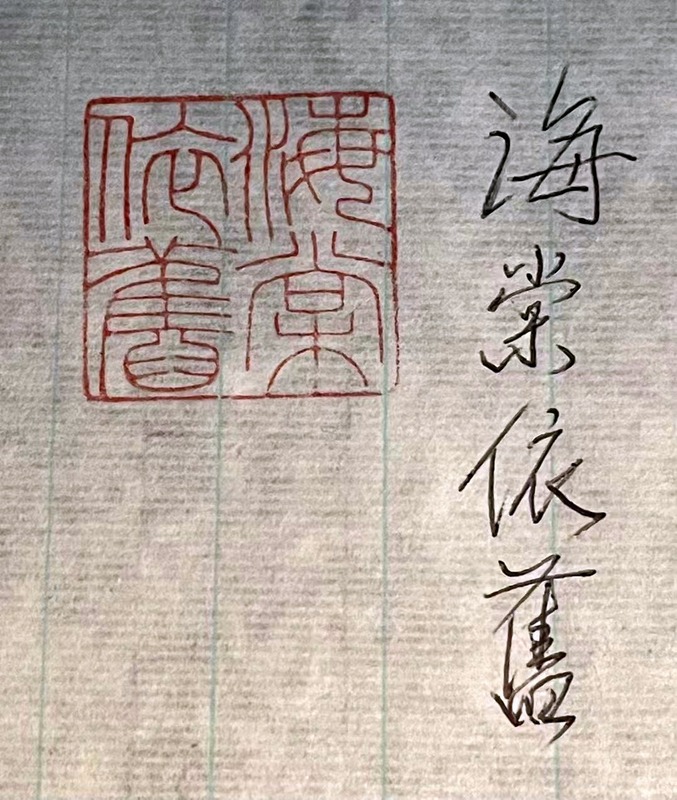 海棠依舊
海棠
依舊